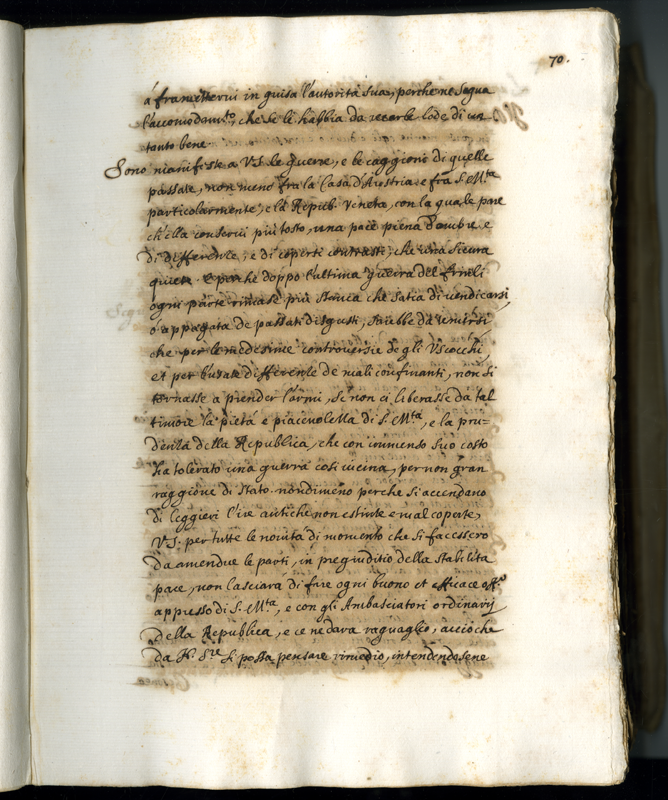 70.
á framettervi in guisa l'autorità sua, perche ne segua
l'accomodam.to, che se li habbia da recarle lode di un
tanto bene
Sono manifeste a V.S. le guerre, e le caggioni di quelle
passate, non meno fra la Casa d'Austria e fra S. M.ta
particolarmente, e la Republ. Veneta, con la quale pare
ch'ella conservi piu tosto, una pace piena d'ombre e
di differenze, e di coperti contrasti, che una sicura
quiete e perche doppo l'ultima guerra del Friuli
ogni parte rimase più stanca che satia di vendicarsi,
ò appagata de passati disgusti, sarebbe da temersi
che per le medesime controversie degli Uscocchi,
et per l'usate differenze de mali confinanti, non si
tornasse a prender l'armi, se non ci liberasse da tal
timore la pietà e piacevolezza di S. M.ta, e la pru-
denza della Republica, che con immenso suo costo
ha tolerato una guerra così vicina, per non gran
raggione di stato nondimeno perche si accendano
di leggieri l'ire antiche non estinte e mal coperte,
V.S. per tutte le novità di momento che si facessero
da amendue le parti, in pregiuditio della stabilita
pace, non lasciarà di fare ogni buono et efficace off.o
appresso di S. M.ta, e con gli Ambasciatori ordinarij
della Republica, e ce ne darà raguaglio, acciò che
da N. S.re si possa pensare rimedio, intendendosene